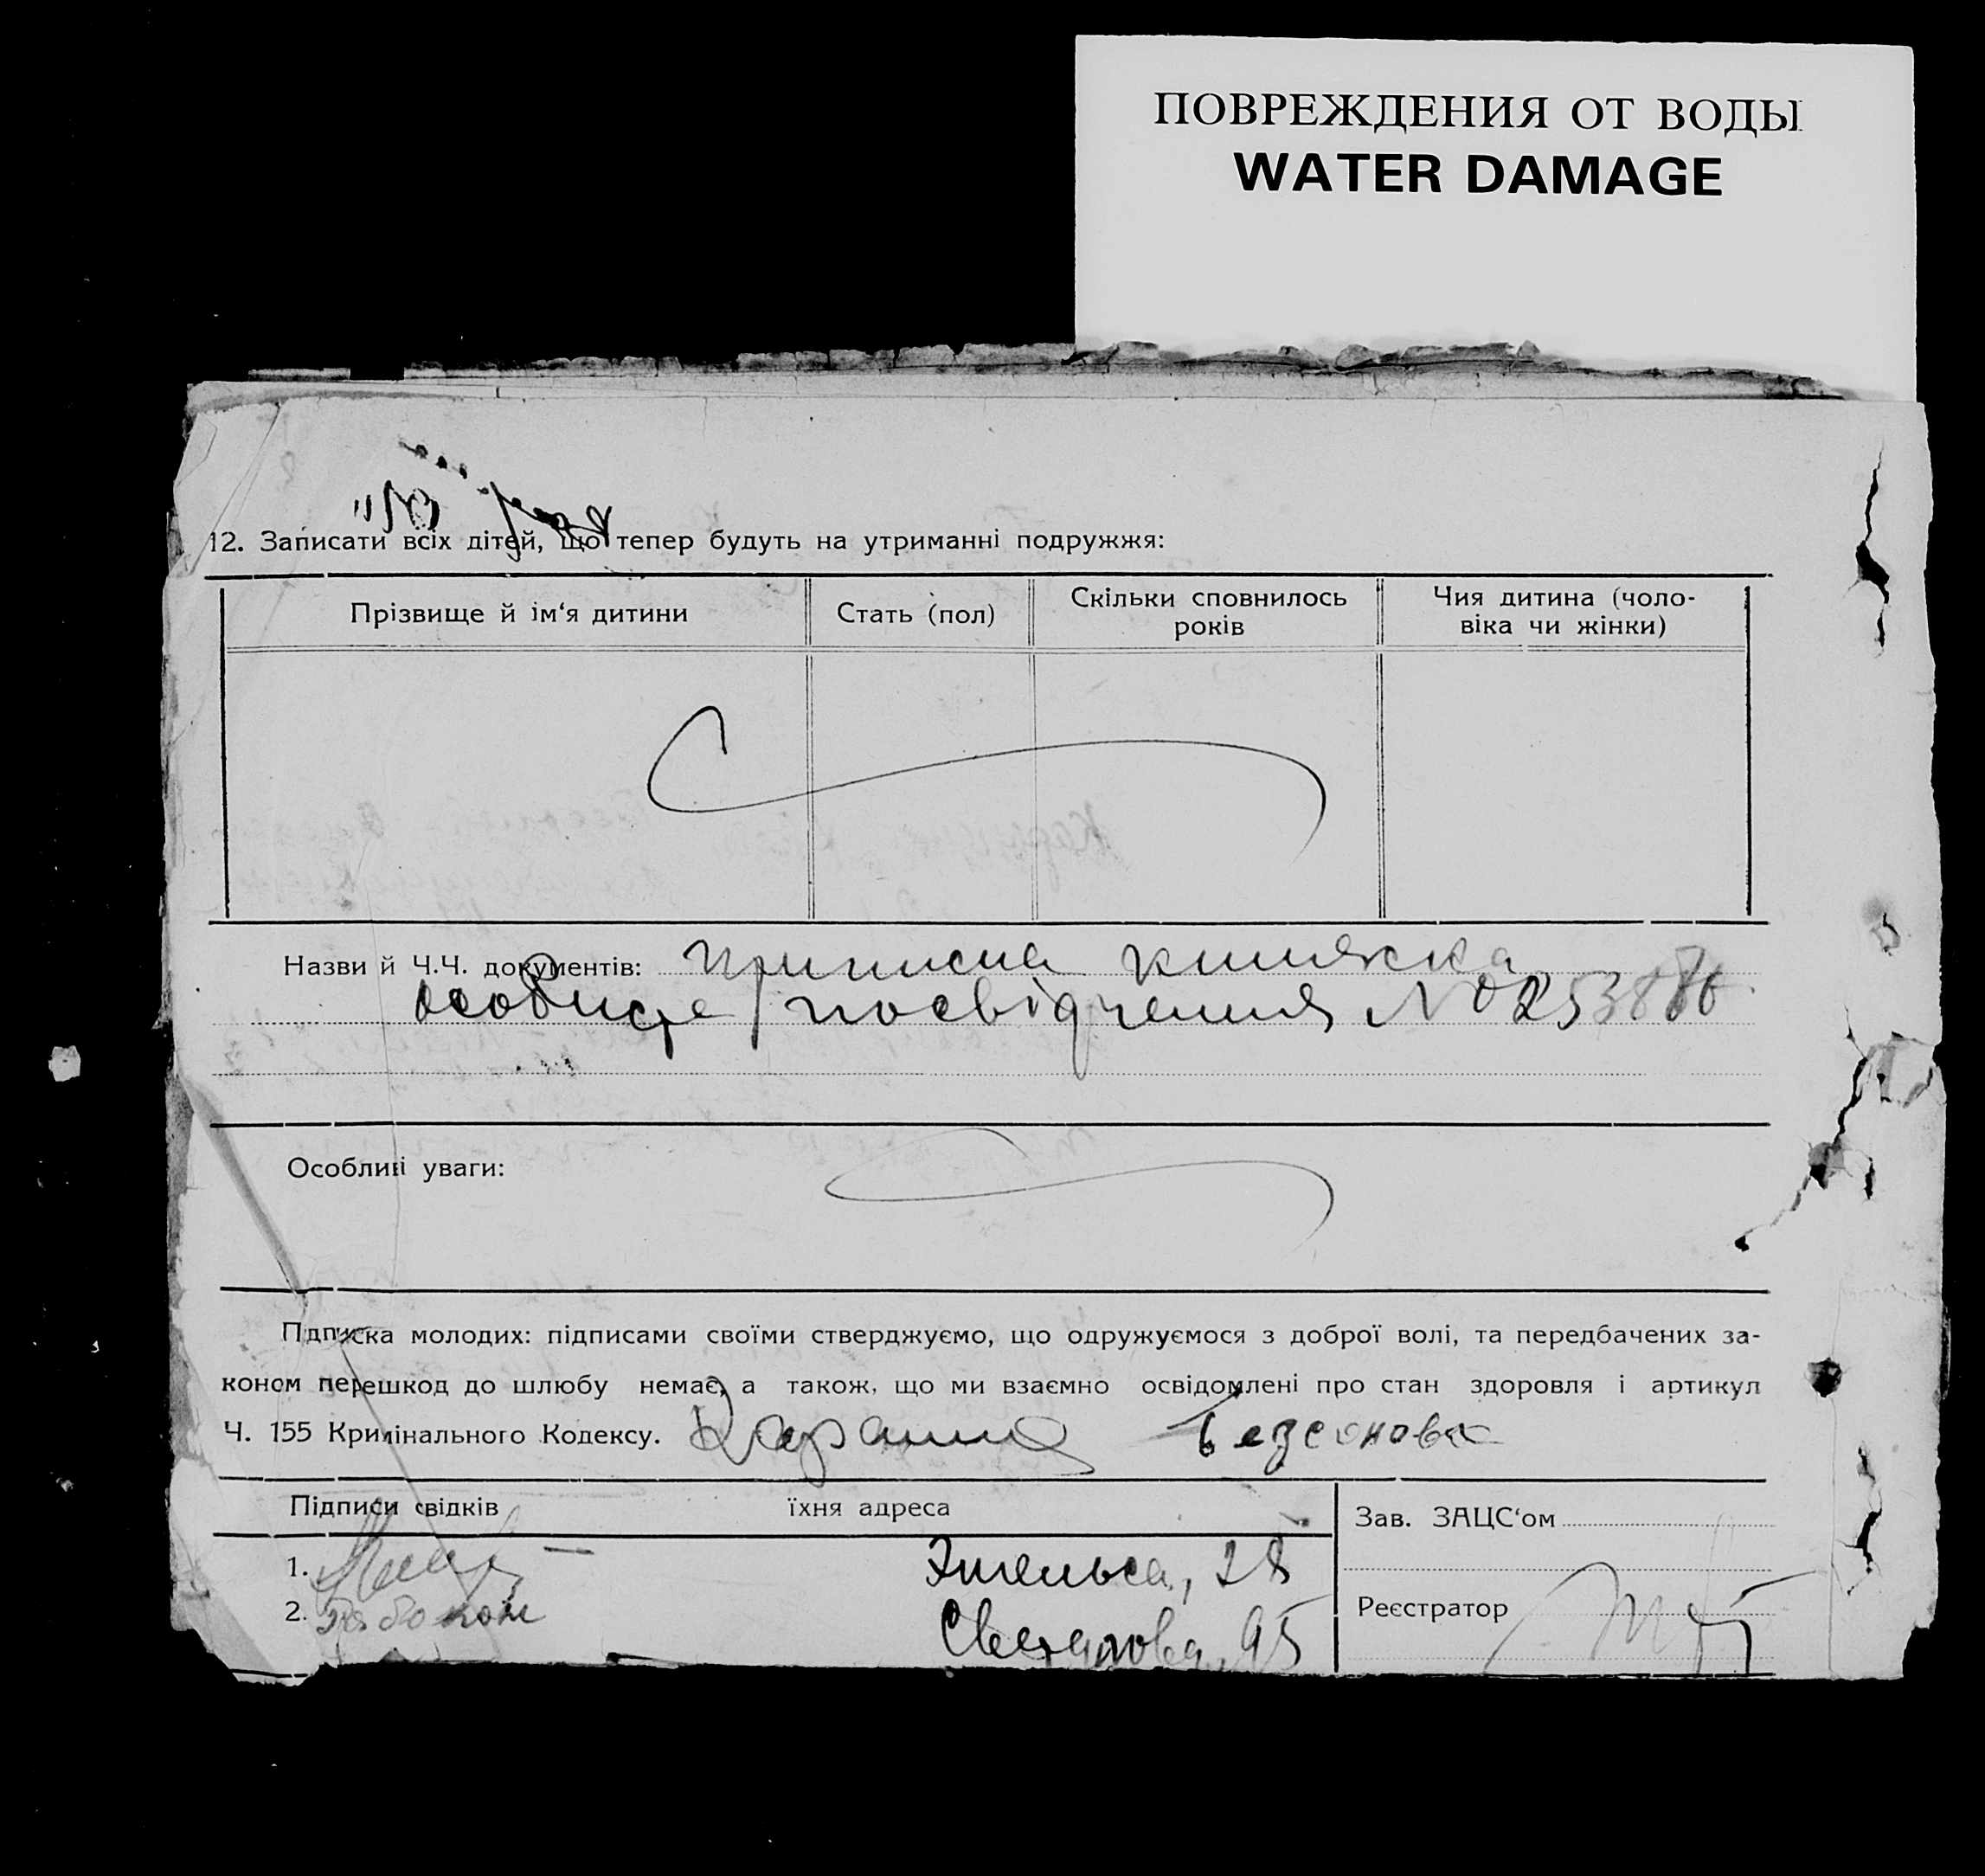 ПОВРЕЖДЕНИЯ ОТ ВОДЫ
WATER DAMAGE
12. Записати всіх дітей, що тепер будуть на утриманні подружжя:
Прізвище й ім‘я дитини
Стать (пол)
Скільки сповнилось
років
Чия дитина (чоло-
віка чи жінки)
Назви й Ч.Ч. документів: приписна книжка
особисте посвідчення №
Особливі уваги:
Підписка молодих: підписами своїми стверджуємо, що одружуємося з доброї волі, та передбачених за-
коном перешкод до шлюбу немає, а також, що ми взаємно освідомлені про стан здоровля і артикул
Ч. 155 Кримінального Кодексу. Безсонова
Підписи свідків їхня адреса
1. Энгельса, 28
2. 95
Зав. ЗАЦС‘ом
Реєстратор